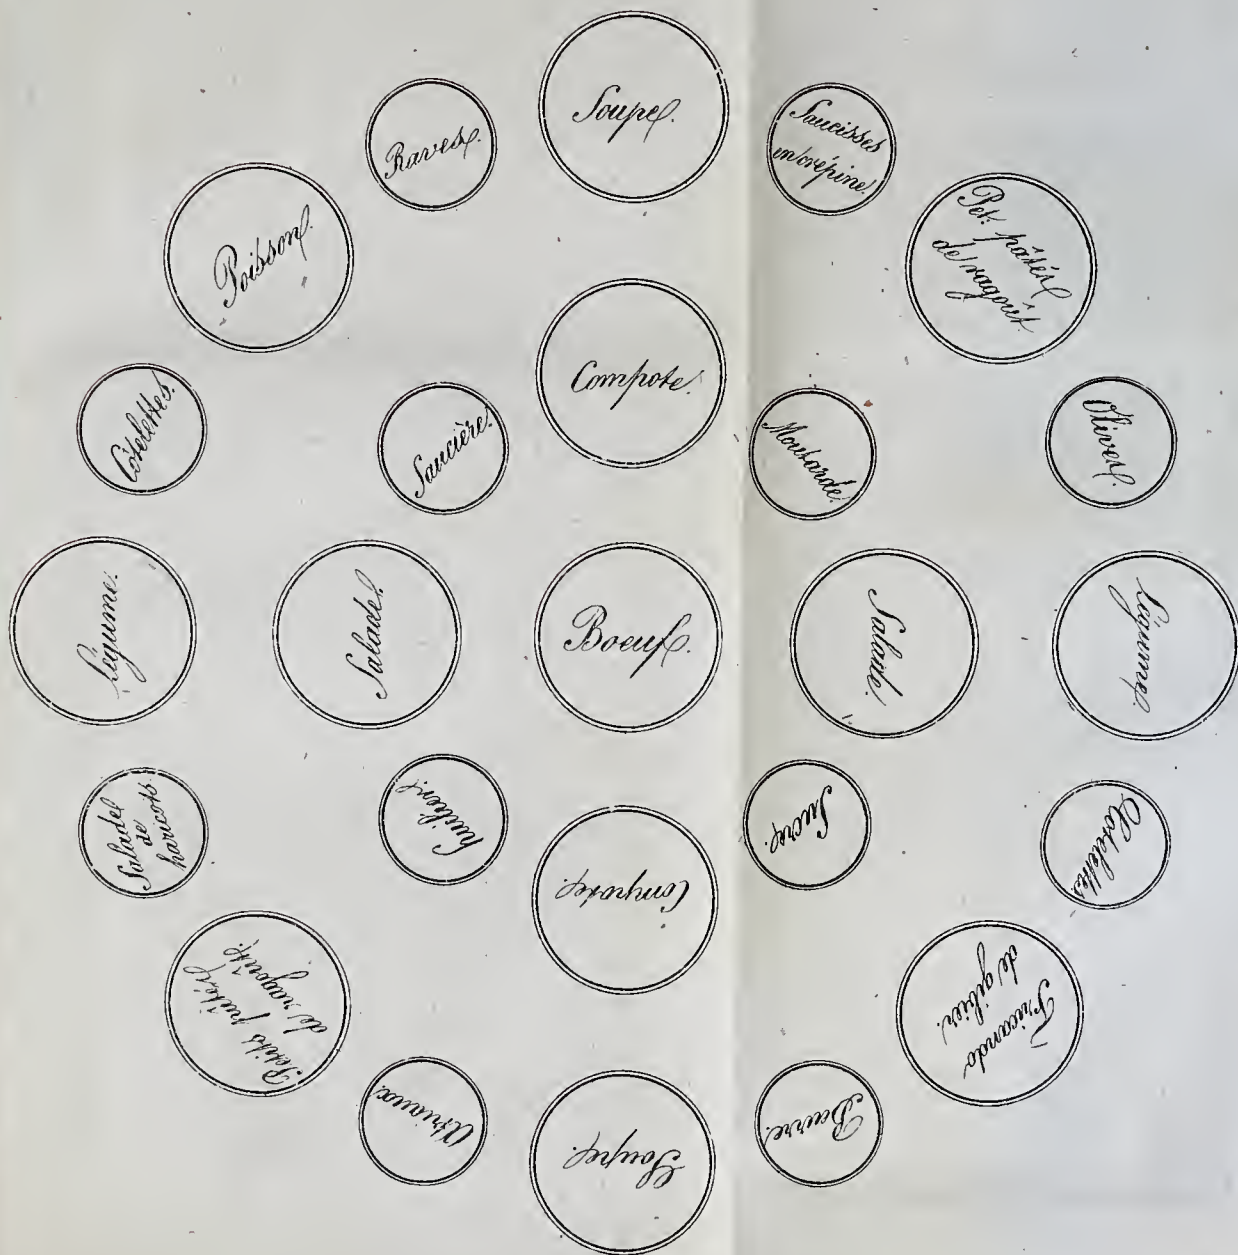 Soupe.
Raves.
Saucisses
en crépine.
Poisson.
Pet. pâtés
de ragoût.
Compote.
Côtelettes.
Saucière.
Moutarde.
Olives.
Légume.
Salade.
Boeuf.
Salade.
Légume.
Salade
de
haricots.
huilier.
Compote.
Sucre.
Côtelettes
Petits pâtés
de ragoût.
Fricando
de gibier.
Atriaux.
Soupe.
Beurre.